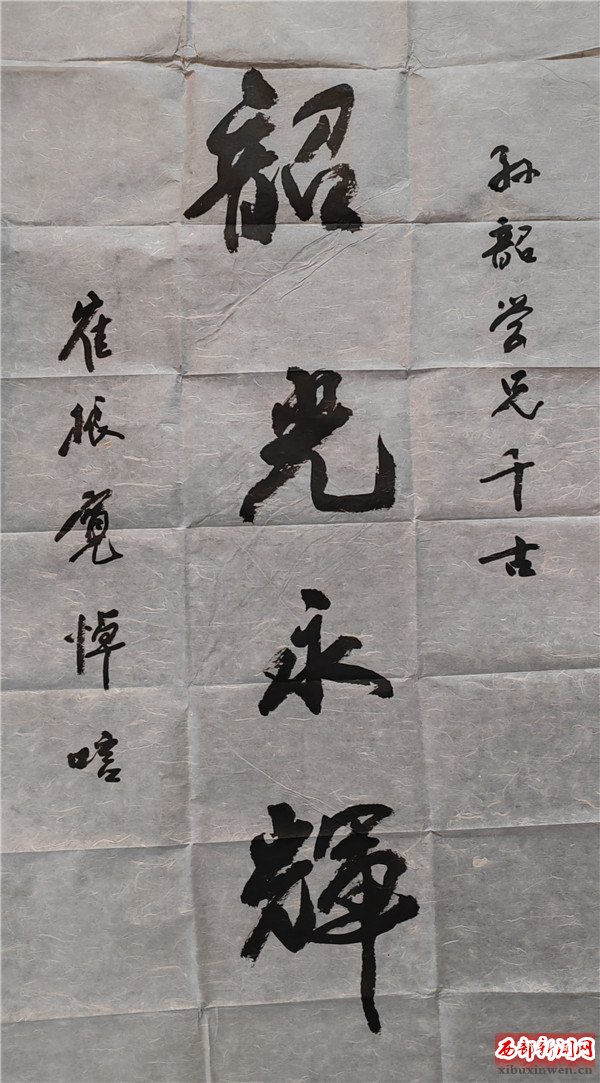 孙韶学兄千古
韶光永輝
崔振寛悼唁
西部新闻网
xibuxinwen.cn